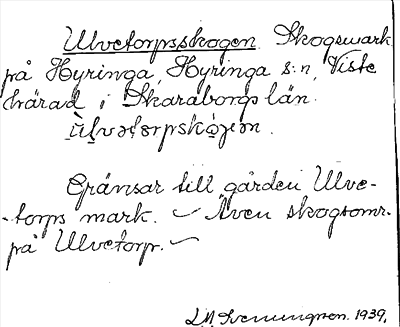 Ulvetorpsskogen. Skogsmark
på Hyringa, Hyringa s:n, Viste
härad i Skaraborgs län.
Gränsar till gården Ulve-
-torps mark. — Även skogsomr.
på Ulvetorp. —
1939.